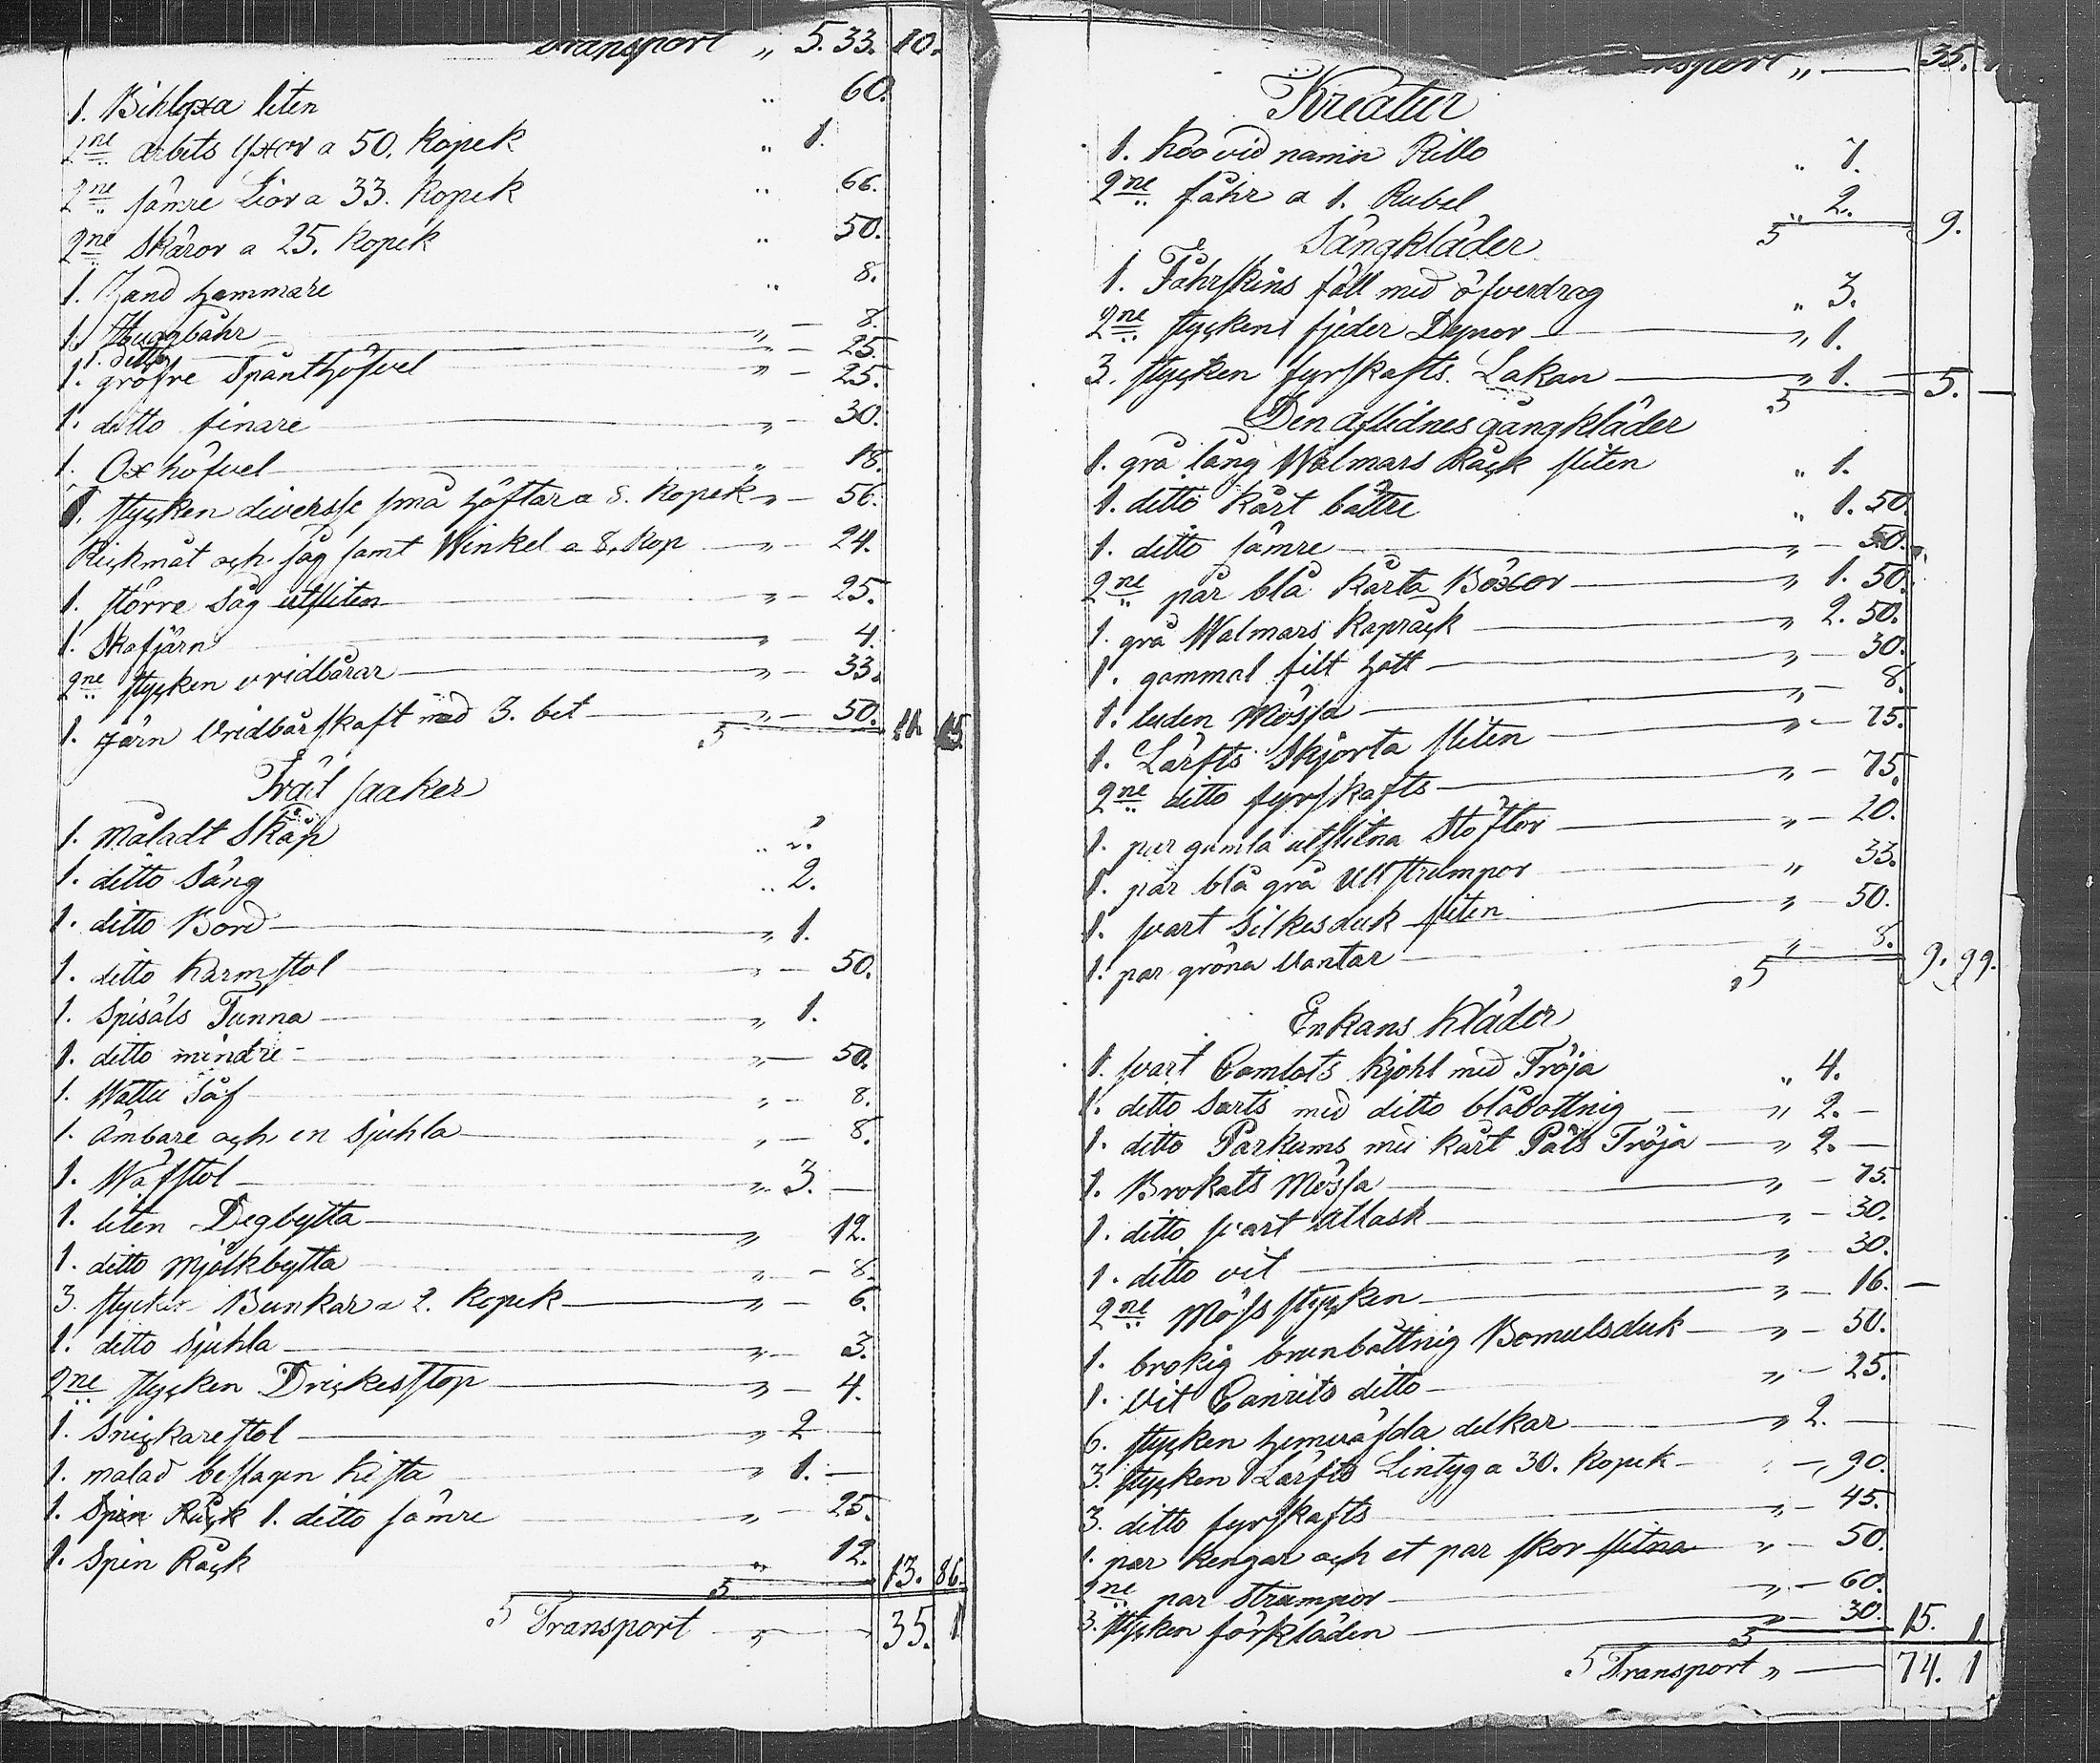 Transport " 5. 33. 10.
1. Bihlyxa liten " 60.
2ne arbets Yxor a 50. Kopek " 1.
2ne sämre Liør a 33. Kopek " 66.
2ne Skäror a 25. Kopek " 50.
1. Hand hammare " 8.
1. Huggbåhr " — 8.
1. ditto " — 25.
1. gröfre Spånthöfvel " — 25.
1. ditto finare " — 30.
1. Oxhöfvel " 18.
stycken diversse små Höflar a 8. Kopek " — 56.
Rickmåt och såg samt Winkel a 8. Kop " — 24.
1. större Såg utsliten " — 25.
1. Skafjärn " — 4.
2ne stycken vridbårar " — 33.
1. Järn Vridbårskaft med 3. bet " — 50. 11. 15
Träil saaker
1. måladt Skåp " 2.
1. ditto Säng " 2.
1. ditto Bord " 1.
1. ditto Karmstol " — 50.
1. Spisåls Tunna " 1.
1. ditto mindre " — 50.
1. Wattu Såf " — 8.
1. Ämbare och en Sjuhla " — 8.
1. Wäfstol " 3. —
1. liten Degbytta " 12.
1. ditto Mjölkbytta " — 8.
3. stycken Bunkar a 2. Kopek " — 6.
1. ditto Sjuhla " — 3.
2ne stycken Drickesstop " — 4.
1. Snickarestol " 2 —
1. målad beslagen Kista " 1. —
1. Spin Råck 1. ditto sämre " — 25.
1. Spin Råck " 12. 13. 86.
Transport — 35. 1
Transport " — 35.
Kreatur
1. Koo vid namn Rillo " 7.
2ne fåhr a 1. Rubel " 2. 9.
Sängkläder
1. Fåhrskins fäll med öfverdrag " 3.
2ne stycken fjäder Dynor " 1.
3. stycken fyrskafts Lakan " 1. — 5. —
Den aflidnes gångkläder
1. grå lång Walmars Råck sliten " 1.
1. ditto kårt båttre " 1. 50.
1. ditto sämre " — 50.
2ne pär blå kårta Böxor " 1. 50.
1. grå Walmars Kapråck " 2. 50.
1. gammal filt Hatt " — 30.
1. luden Mössa " — 8.
1. Lärfts Skjorta sliten " — 75.
2ne ditto fyrskafts " — 75.
1. par gamla utslitna Stöflor " — 20.
1. pär blå grå Ullstrumpor " 33.
1. svart Silkesduk sliten " — 50.
1. par gröna Vantar " — 8. 9. 99.
Enkans Kläder
1. svart Camlots Kjohl med Tröja " 4.
1. ditto Sarts med ditto blåbottnig " 2. —
1. ditto Parkums med kårt Päls Tröja " 2. —
1. Brokats Mössa " — 75.
1. ditto svart Atlask " — 30.
1. ditto vit " — 30.
2ne Möss stycken " — 16. —
1. brokig brunbottnig Bomulsduk " — 50.
1. Vit Canrits ditto " — 25.
6. stycken hemväfda dukar " 2. —
3. stycken Lärfts Lintyg a 30. Kopek —, 90.
3. ditto fyrskafts " — 45.
1. par Kengar och et par skor slitna " — 50.
2ne par Strumpor " — 60.
3. stycken förkläden " — 30. 15. 1.
Transport " — 74. 1